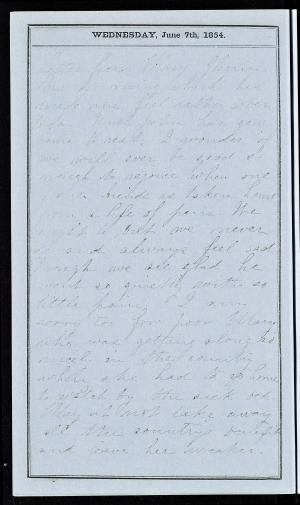 WEDNESDAY, June 7th, 1854.
letter from
this morning which has
made me feel rather sober
Uncle John has gone
home to rest. I wonder if
we will ever be good e-
nough to rejoice when one
of our friends is taken home
from a life of pain. We
but we never
do and always feel sad
though we are glad he
went so quietly with so
little pain. I am
sorry too for poor Mary
who was getting along so
nicely in the country
when she had to go home
to watch by the sick bed.
May it not take away
all the country benefit
and leave her weaker.